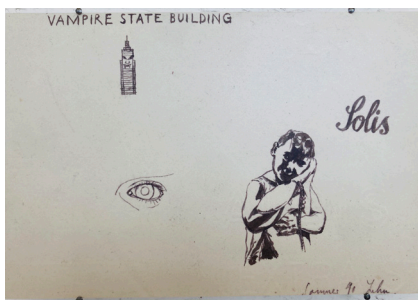 VAMPIRE STATE BUILDING
Solis
Sommer 90